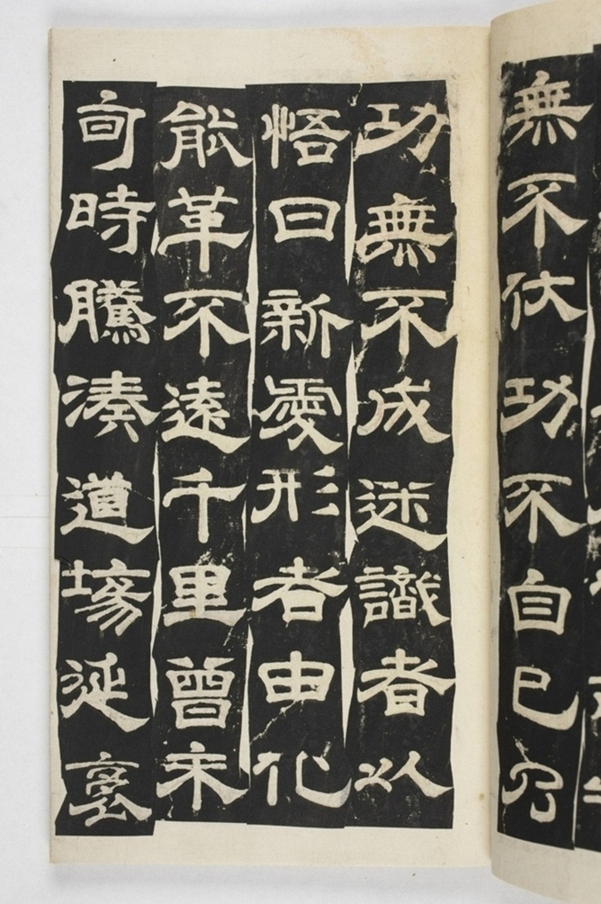 無不伏功不自已
功無不成迷識者以
悟日新愛形者由化
能革不遠千里曾未
旬時騰湊道場延袤